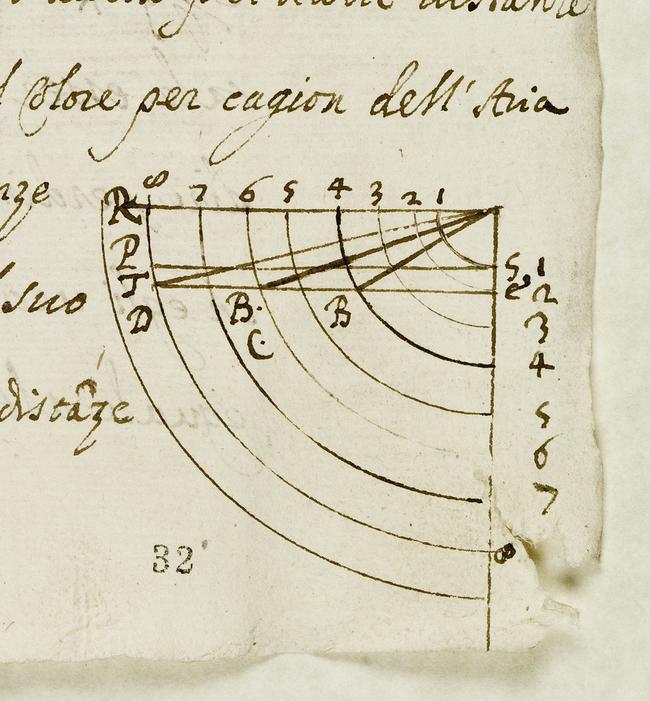 distante
Colore per cagion dell' Aria
nze
suo
distaze
R 8 7 6 5 4 3 2 1
P
S 1
T
e 2
B. B
D
C
3
4
5
6
7
8
32